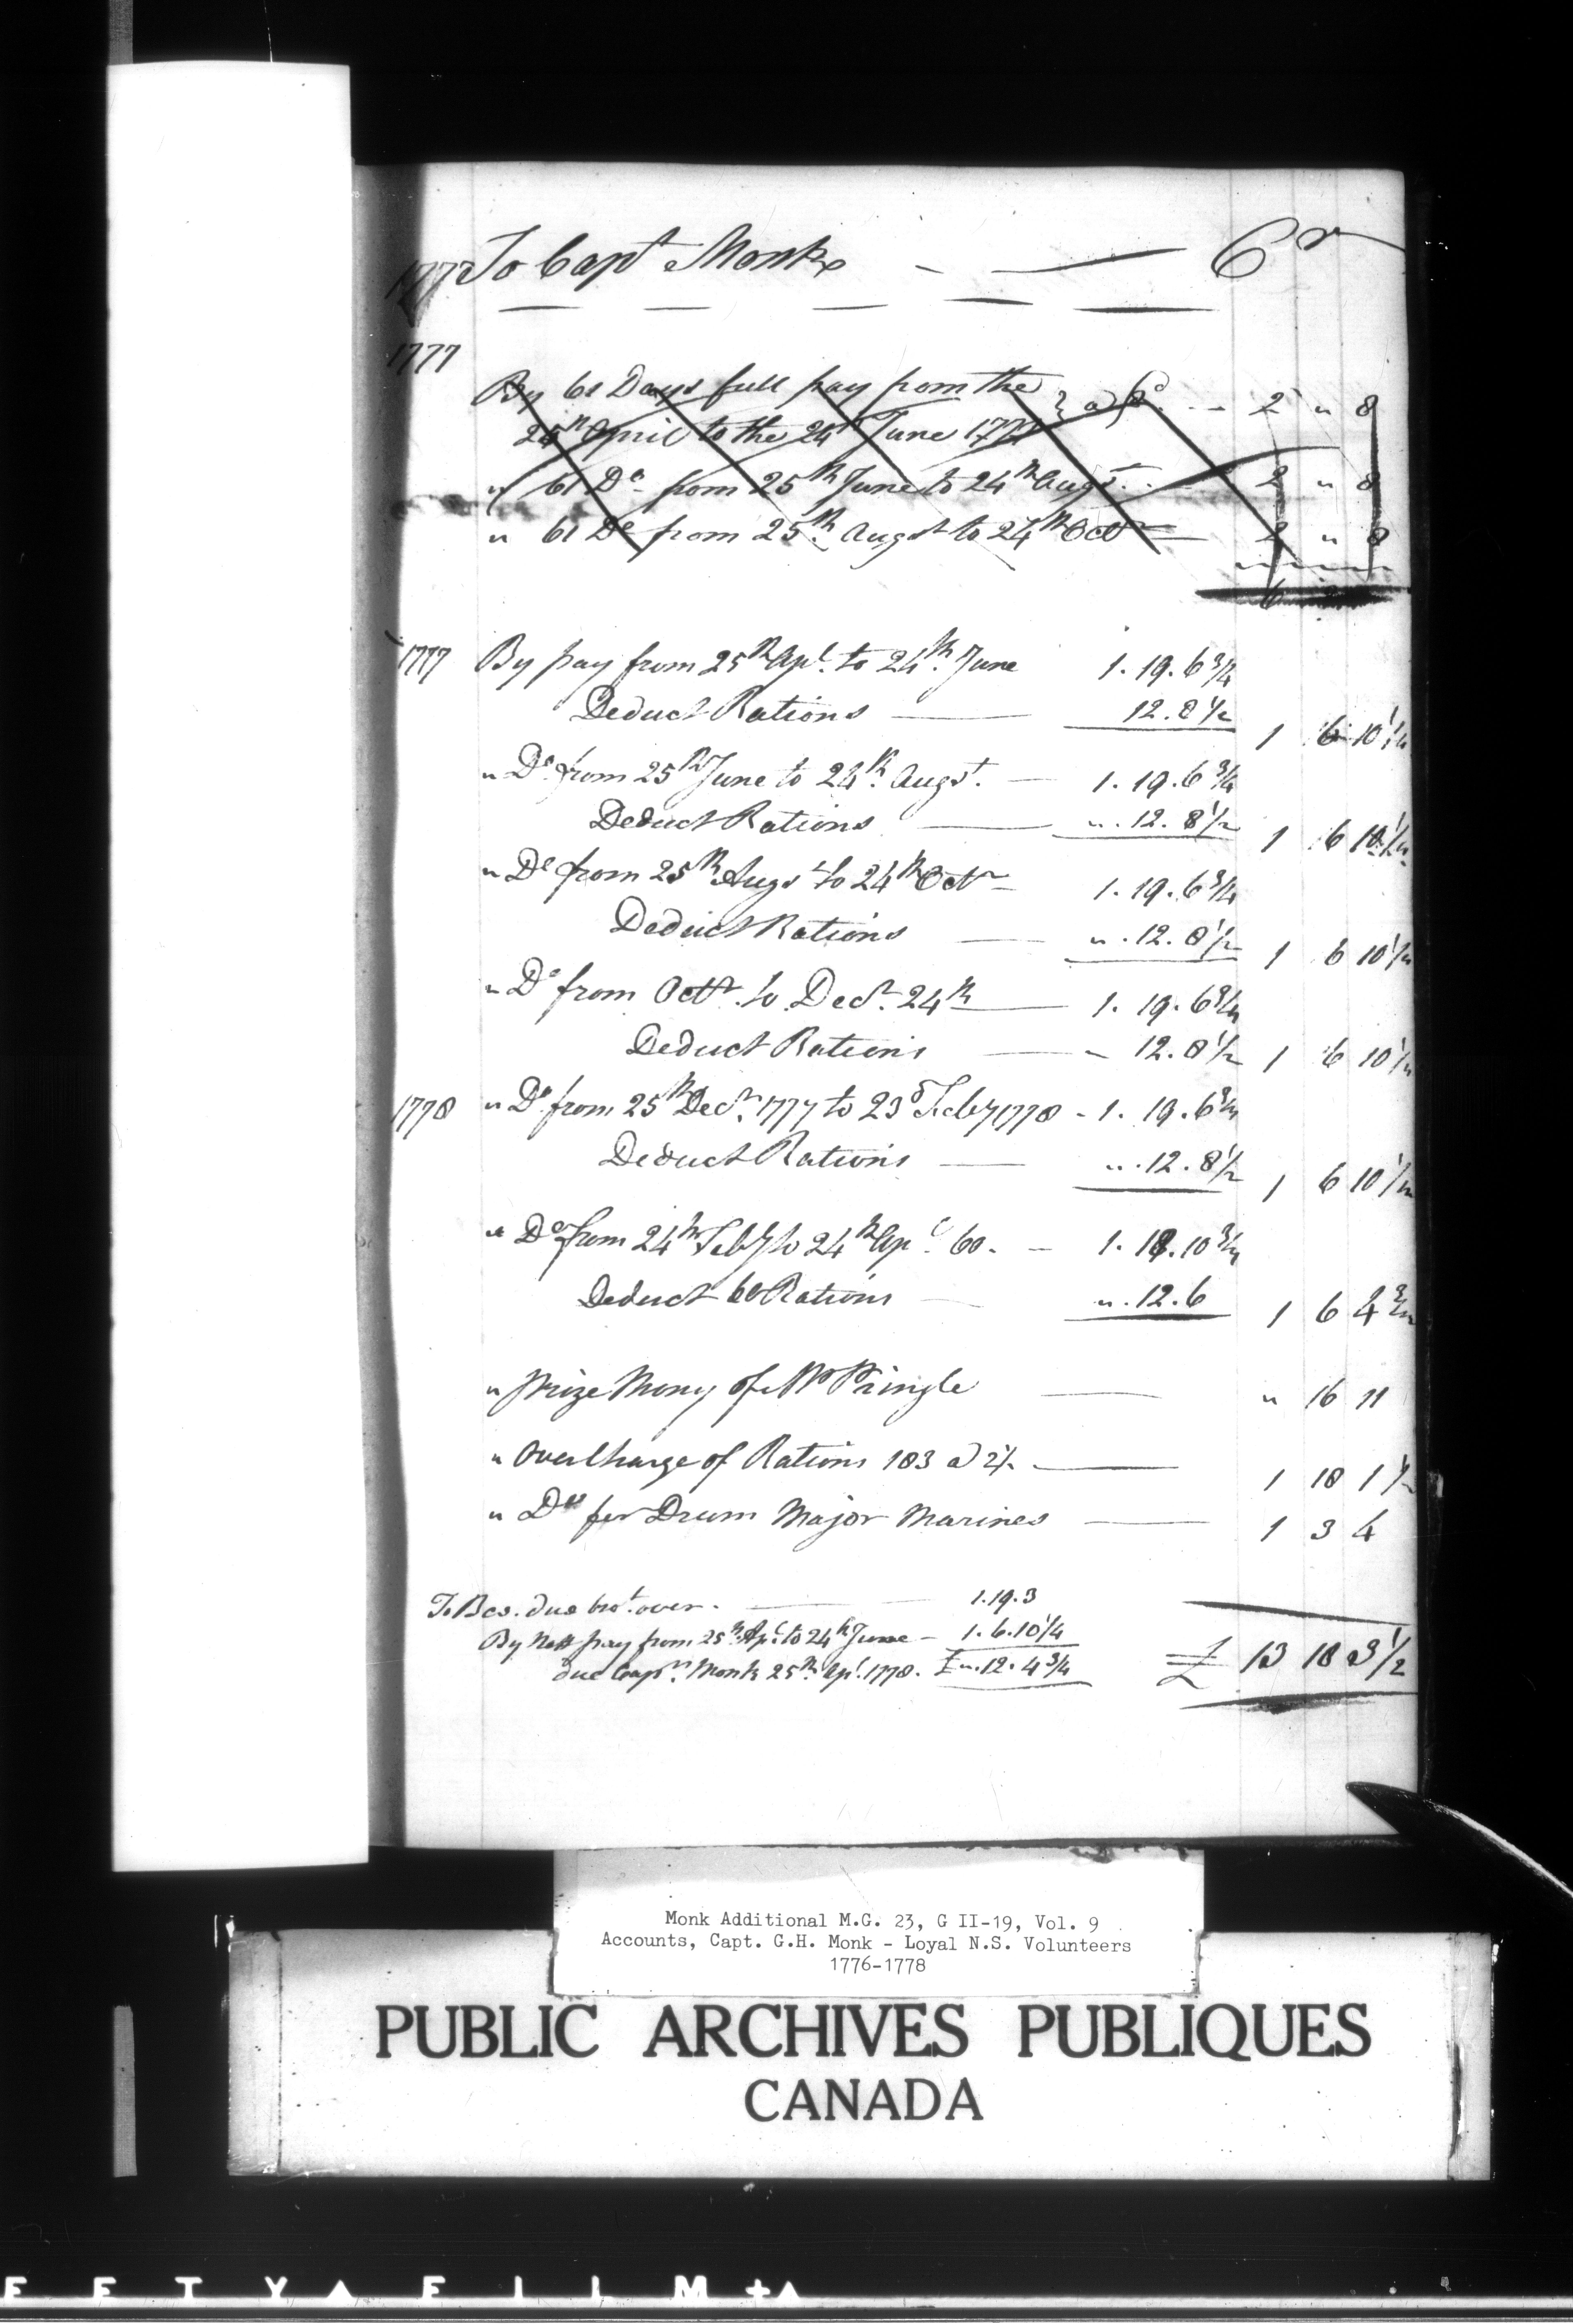 1777 To Capt Monk — — Cr
1777
By 61 Days full pay from the } a 8d - - 2 " 8
25th April to the 24th June 1777
" 61 Do from 25th June to 24th Augt. - 2 " 8
" 61 Do from 25th Augst to 24th Octr — 2 " 8
6
1777 By pay from 25th Apl. to 24th. June 1. 19. 6 3/4
Deduct Rations — 12. 8 1/2 1 6 10 1/4
" Do from 25th June to 24th. Augst. — 1. 19. 6 3/4
Deduct Rations — " . 12. 8 1/2 1 6 10 1/4
" Do from 25th Augst to 24th Octr — 1. 19. 6 3/4
Deduct Rations — " . 12. 8 1/2 1 6 10 1/4
" Do from Octr. to Decr. 24th — 1. 19. 6 3/4
Deduct Rations — 12. 8 1/2 1 6 10 1/4
1778 " Do. from 25th Decr. 1777 to 23d Feby 1778 - 1. 19. 6 3/4
Deduct Rations — " . 12. 8 1/2 1 6 10 1/4
" Do from 24th Feby to 24th Apl. 60. — 1. 18. 10 3/4
Deduct 60 Rations — " . 12. 6 1 6 4 3/4
" Prize Mony of Mr Pringle — " 16 11
" Overcharge of Rations 183 a 2 1/2 — 1 18 1 1/2
" Do for Drum Major Marines — 1 3 4
To Bce. due brot. over. — 1. 19. 3
By Nett pay from 25th. Apl. to 24th June — 1. 6. 10 1/4
due Capn. Monk 25th Apl. 1778. £ " . 12. 4 3/4 £ 13 18 3 1/2
Monk Additional M.G. 23, G II-19, Vol. 9
Accounts, Capt. G.H. Monk - Loyal N.S. Volunteers
1776-1778
PUBLIC ARCHIVES PUBLIQUES
CANADA